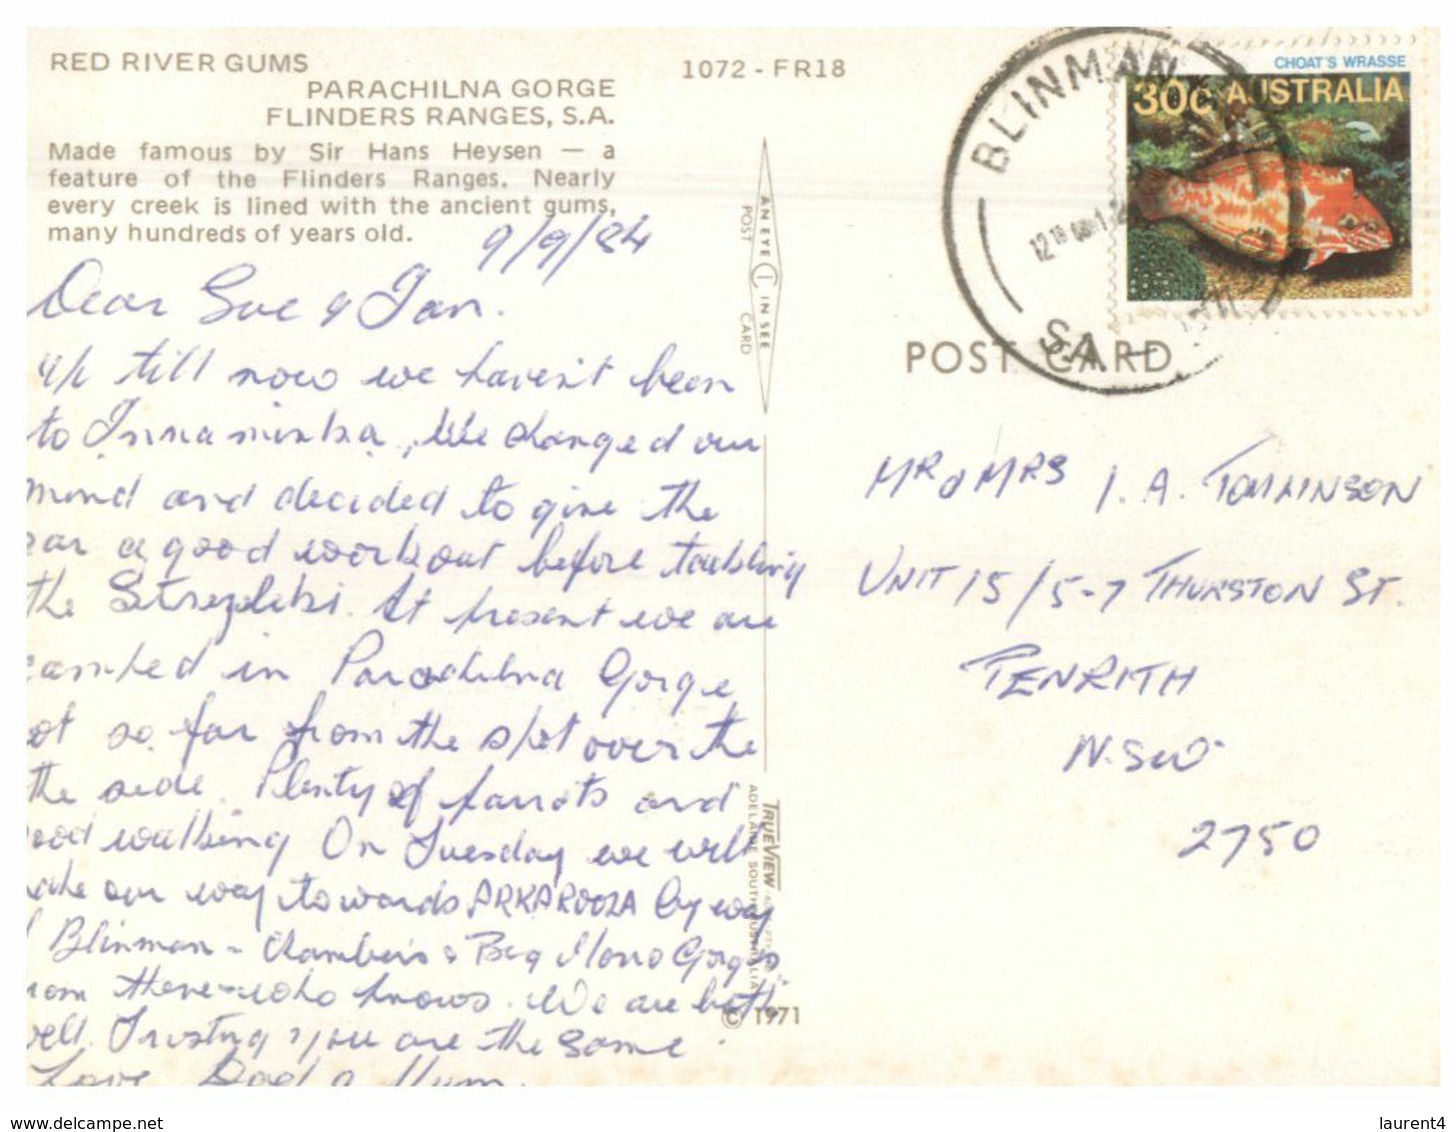 RED RIVER GUMS
PARACHILNA GORGE
FLINDERS RANGES, S.A.
Made famous by Sir Hans Heysen — a
feature of the Flinders Ranges. Nearly
every creek is lined with the ancient gums,
many hundreds of years old.
9/9/84
Dear Sue & Ian.
U/L till now we haven't been
to Innaminka, We changed our
mind and decided to give the
car a good workout before tackling
the Strezleki. At present we are
camped in Parachilna Gorge
not so far from the spot over the
the side. Plenty of parrots and
good walking On Tuesday we will
make our way towards ARKAROOLA by way
of Blinman - Chambers & Big Moro Gorges.
from there - who knows. We are both
well. Trusting you are the same.
Love Dad & Mum.
1072 - FR18
AN EYE IN SEE
POST CARD
TRUEVIEW
ADELAIDE SOUTH AUSTRALIA
© 1971
BLINMAN
SA -
CHOAT'S WRASSE
30c AUSTRALIA
POST CARD
MR & MRS I. A. TOMLINSON
UNIT 15/5-7 THURSTON ST.
PENRITH
N.S.W.
2750
www.delcampe.net
laurent4